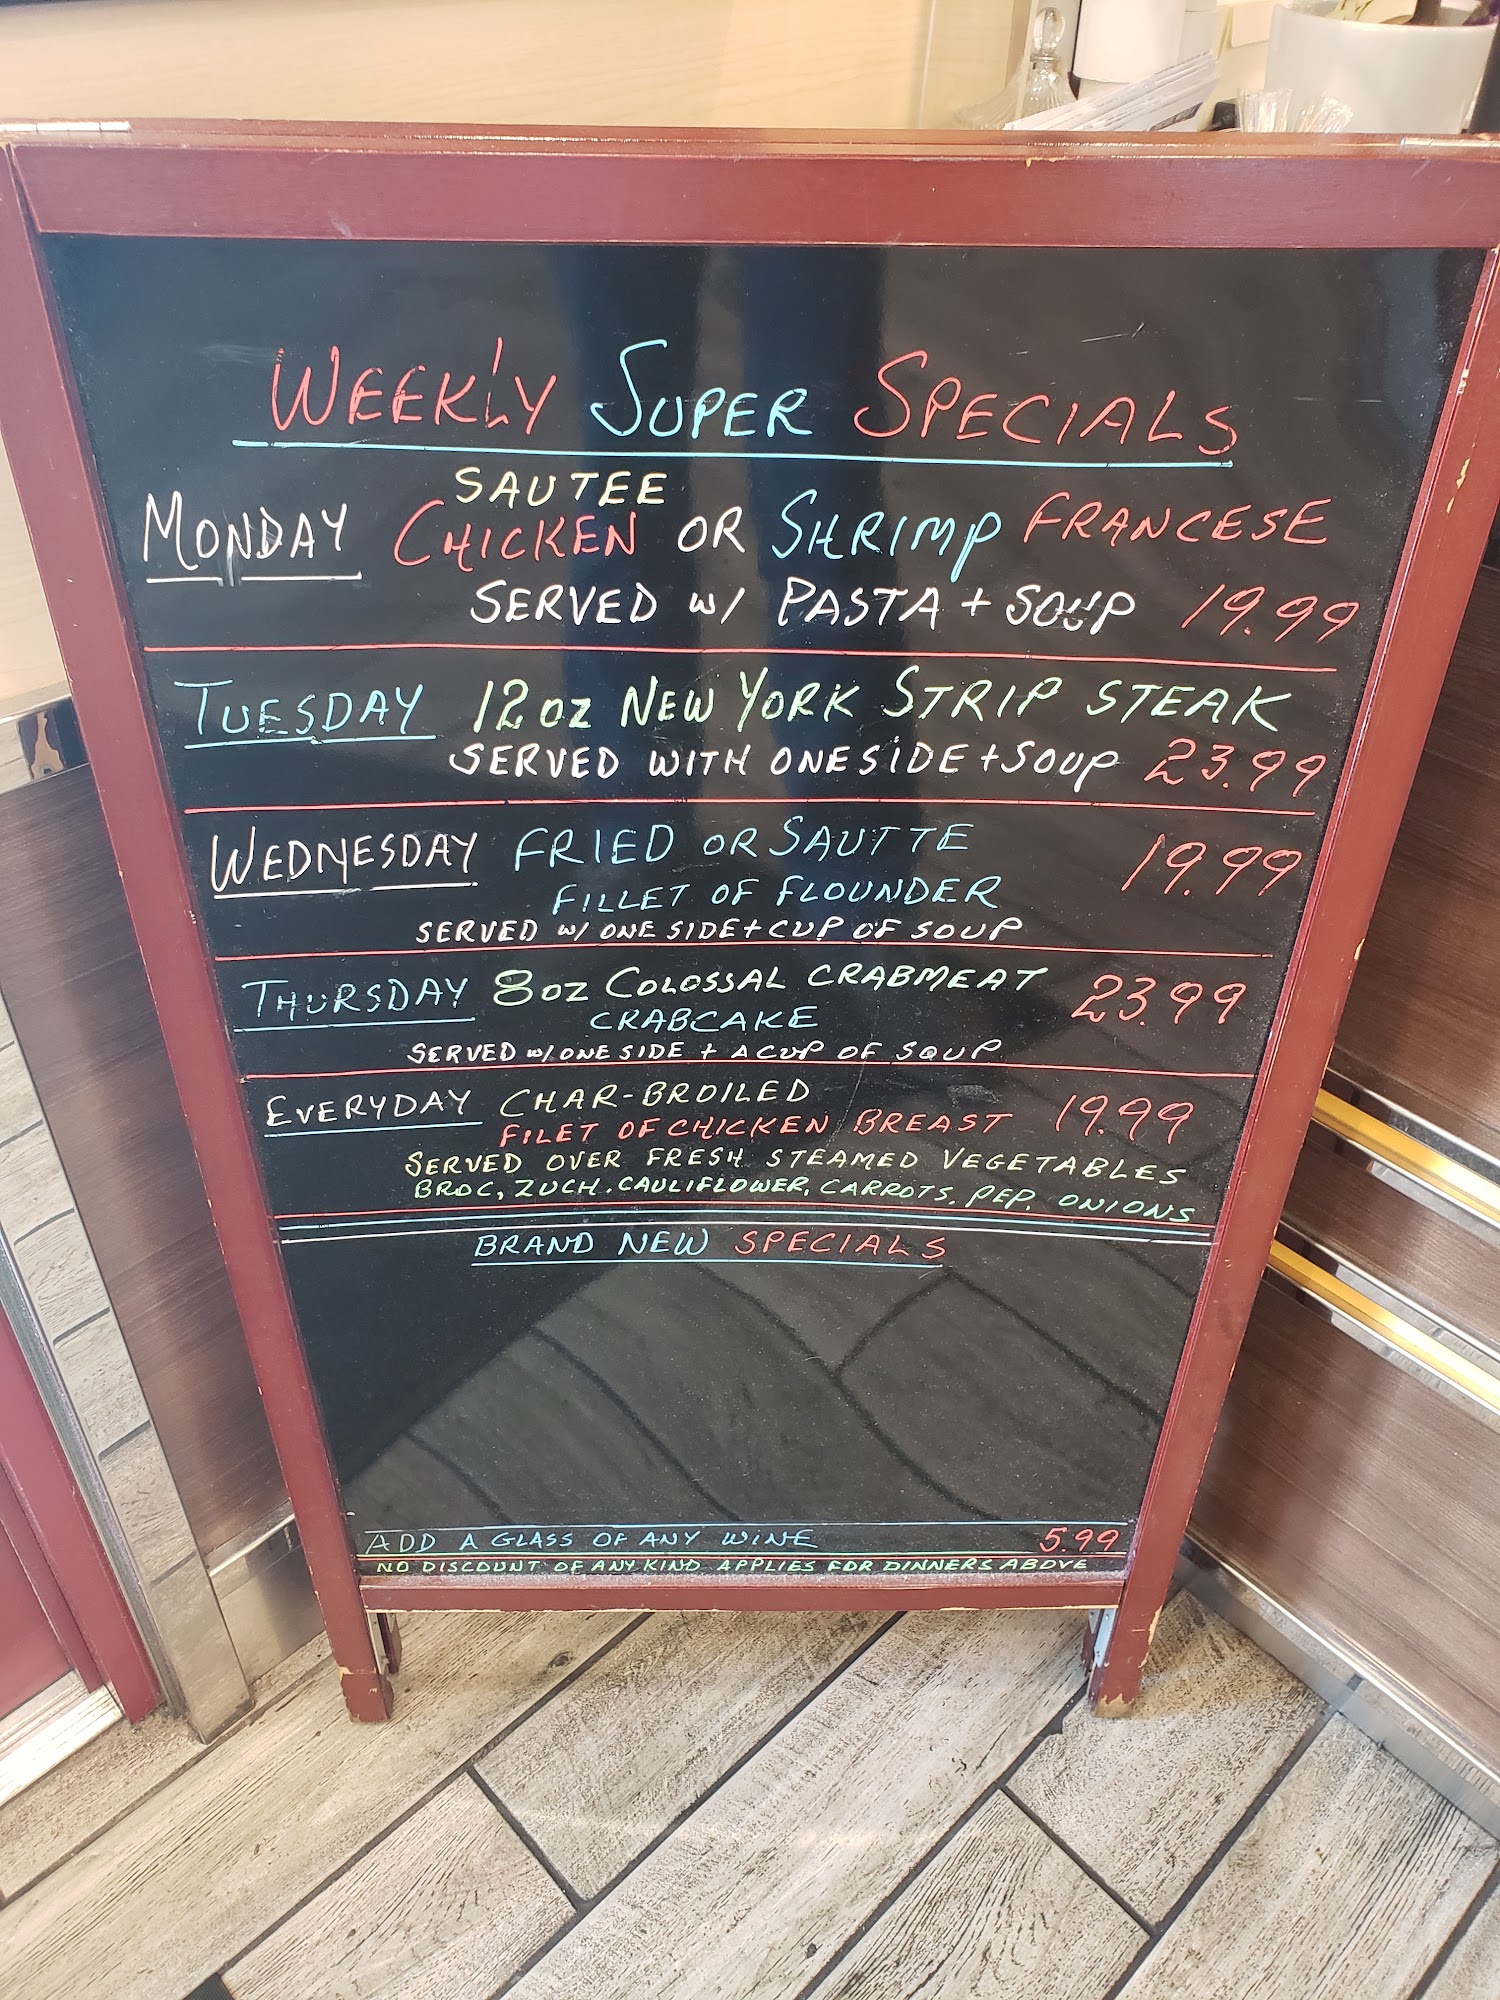 WEEKLY SUPER SPECIALS
SAUTEE
MONDAY CHICKEN OR SHRIMP FRANCESE
SERVED W/ PASTA + SOUP 19.99
TUESDAY 12 OZ NEW YORK STRIP STEAK
SERVED WITH ONE SIDE + SOUP 23.99
WEDNESDAY FRIED OR SAUTTE 19.99
FILLET OF FLOUNDER
SERVED W/ ONE SIDE + CUP OF SOUP
THURSDAY 8 OZ COLOSSAL CRABMEAT 23.99
CRABCAKE
SERVED W/ ONE SIDE + A CUP OF SOUP
EVERYDAY CHAR-BROILED
FILET OF CHICKEN BREAST 19.99
SERVED OVER FRESH STEAMED VEGETABLES
BROC, ZUCH. CAULIFLOWER, CARROTS. PEP. ONIONS
BRAND NEW SPECIALS
ADD A GLASS OF ANY WINE 5.99
NO DISCOUNT OF ANY KIND APPLIES FOR DINNERS ABOVE